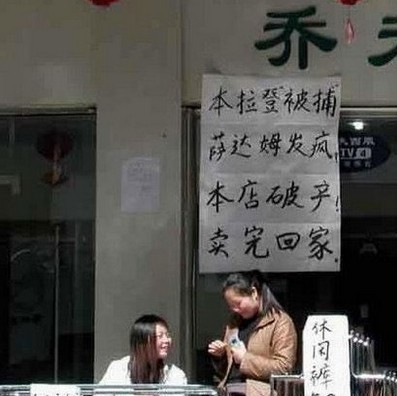 乔
本拉登被捕
萨达姆发疯!
本店破产!
卖完回家.
TV4
休闲裤